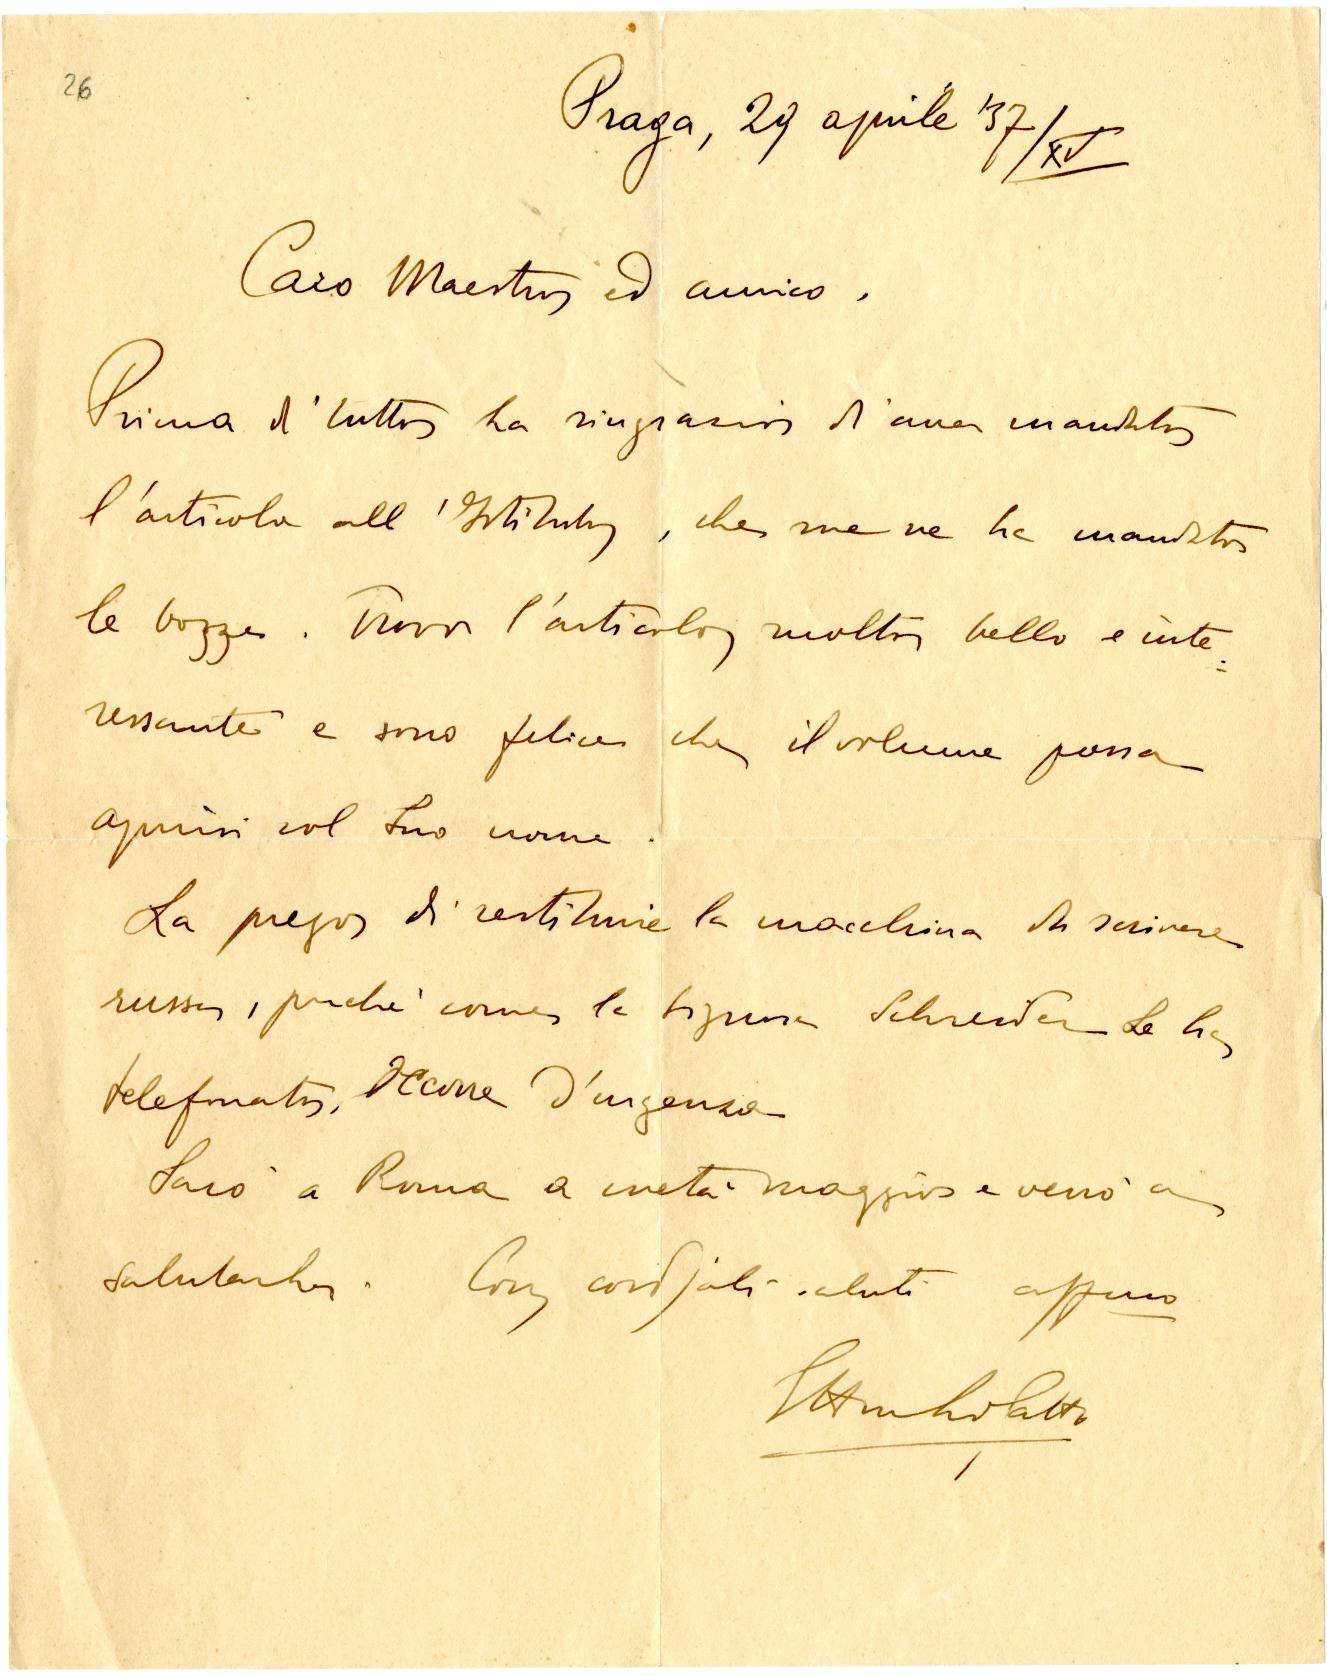 26
Praga, 29 aprile '37/XV
Caro Maestro ed amico.
Prima di tutto La ringrazio di aver mandato
l'articolo all'Istituto, che me ne ha mandato
le bozze. Trovo l'articolo molto bello e inte=
ressante e sono felice che il volume possa
aprirsi col Suo nome.
La prego di restituire la macchina da scrivere
russa, perché come la Signora Schreider Le ha
telefonato, occorre d'urgenza
Sarò a Roma a metà maggio e verrò a
salutarLa. Con cordiali saluti affmo
Ettore Lo Gatto